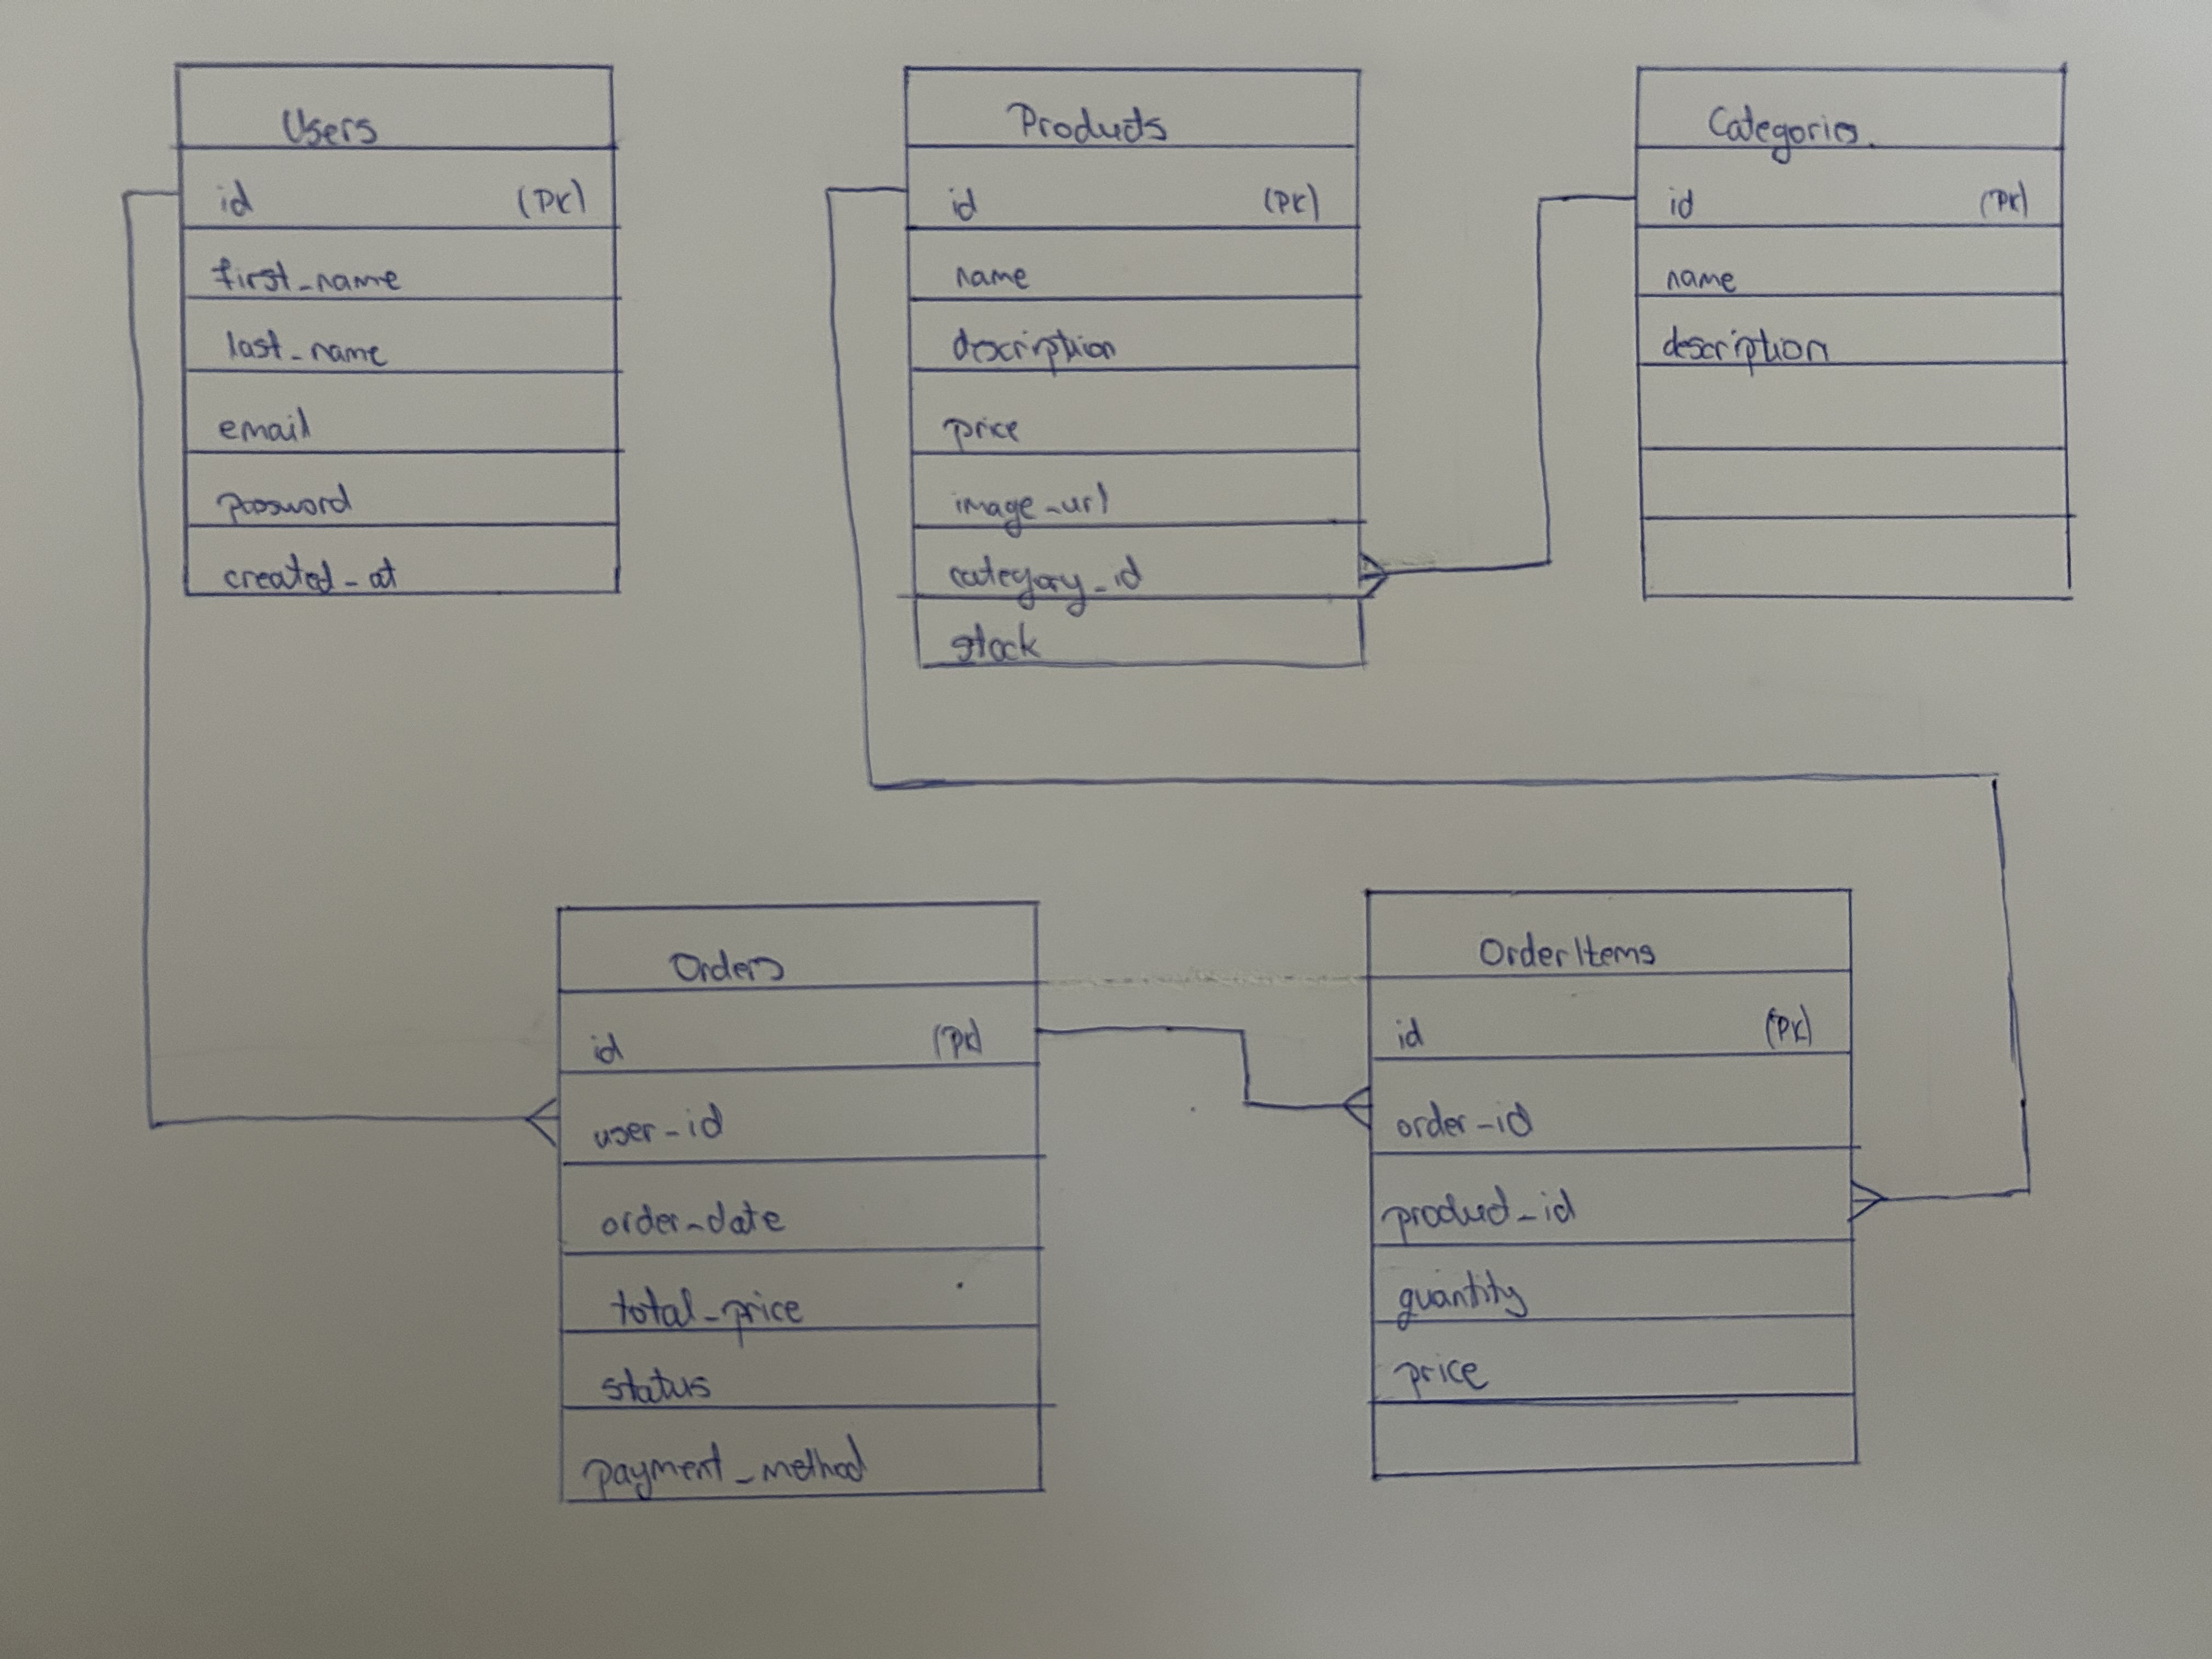 Users
id (PK)
first_name
last_name
email
password
created_at
Products
id (PK)
name
description
price
image_url
category_id
stock
Categories
id (PK)
name
description
Orders
id (PK)
user_id
order_date
total_price
status
payment_method
OrderItems
id (PK)
order_id
product_id
quantity
price